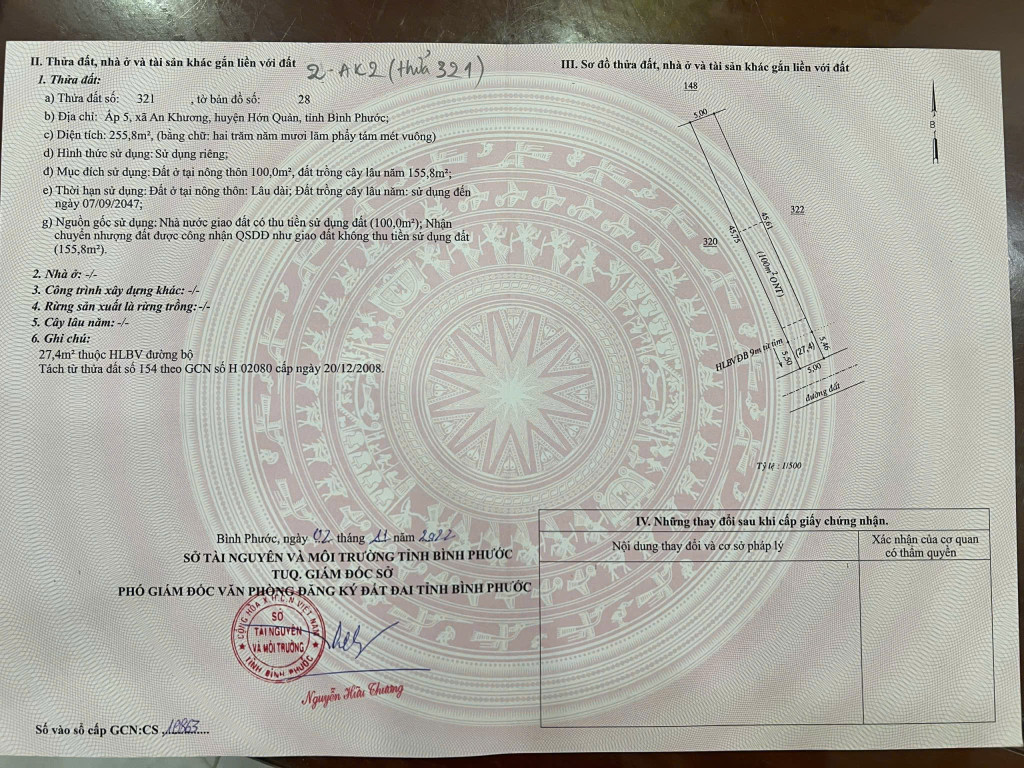 II. Thửa đất, nhà ở và tài sản khác gắn liền với đất
2-AK2 (thửa 321)
1. Thửa đất:
a) Thửa đất số: 321 , tờ bản đồ số: 28
b) Địa chỉ: Ấp 5, xã An Khương, huyện Hớn Quản, tỉnh Bình Phước;
c) Diện tích: 255,8m², (bằng chữ: hai trăm năm mươi lăm phẩy tám mét vuông)
d) Hình thức sử dụng: Sử dụng riêng;
đ) Mục đích sử dụng: Đất ở tại nông thôn 100,0m², đất trồng cây lâu năm 155,8m²;
e) Thời hạn sử dụng: Đất ở tại nông thôn: Lâu dài; Đất trồng cây lâu năm: sử dụng đến
ngày 07/09/2047;
g) Nguồn gốc sử dụng: Nhà nước giao đất có thu tiền sử dụng đất (100,0m²); Nhận
chuyển nhượng đất được công nhận QSDĐ như giao đất không thu tiền sử dụng đất
(155,8m²).
2. Nhà ở: -/-
3. Công trình xây dựng khác: -/-
4. Rừng sản xuất là rừng trồng: -/-
5. Cây lâu năm: -/-
6. Ghi chú:
27,4m² thuộc HLBV đường bộ
Tách từ thửa đất số 154 theo GCN số H 02080 cấp ngày 20/12/2008.
Bình Phước, ngày 02 tháng 11 năm 2022
SỞ TÀI NGUYÊN VÀ MÔI TRƯỜNG TỈNH BÌNH PHƯỚC
TUQ. GIÁM ĐỐC SỞ
PHÓ GIÁM ĐỐC VĂN PHÒNG ĐĂNG KÝ ĐẤT ĐAI TỈNH BÌNH PHƯỚC
CỘNG HÒA X.H.C.N VIỆT NAM
SỞ
TÀI NGUYÊN
VÀ MÔI TRƯỜNG
TỈNH BÌNH PHƯỚC
Nguyễn Hữu Thương
Số vào sổ cấp GCN:CS 10863
III. Sơ đồ thửa đất, nhà ở và tài sản khác gắn liền với đất
148
5,00
B
322
45,61
45,75
320
(100m² ONT)
HLBVĐB 9m từ tim
5,50
(27,4)
5,46
5,00
đường đất
Tỷ lệ : 1/500
IV. Những thay đổi sau khi cấp giấy chứng nhận.
Nội dung thay đổi và cơ sở pháp lý
Xác nhận của cơ quan
có thẩm quyền